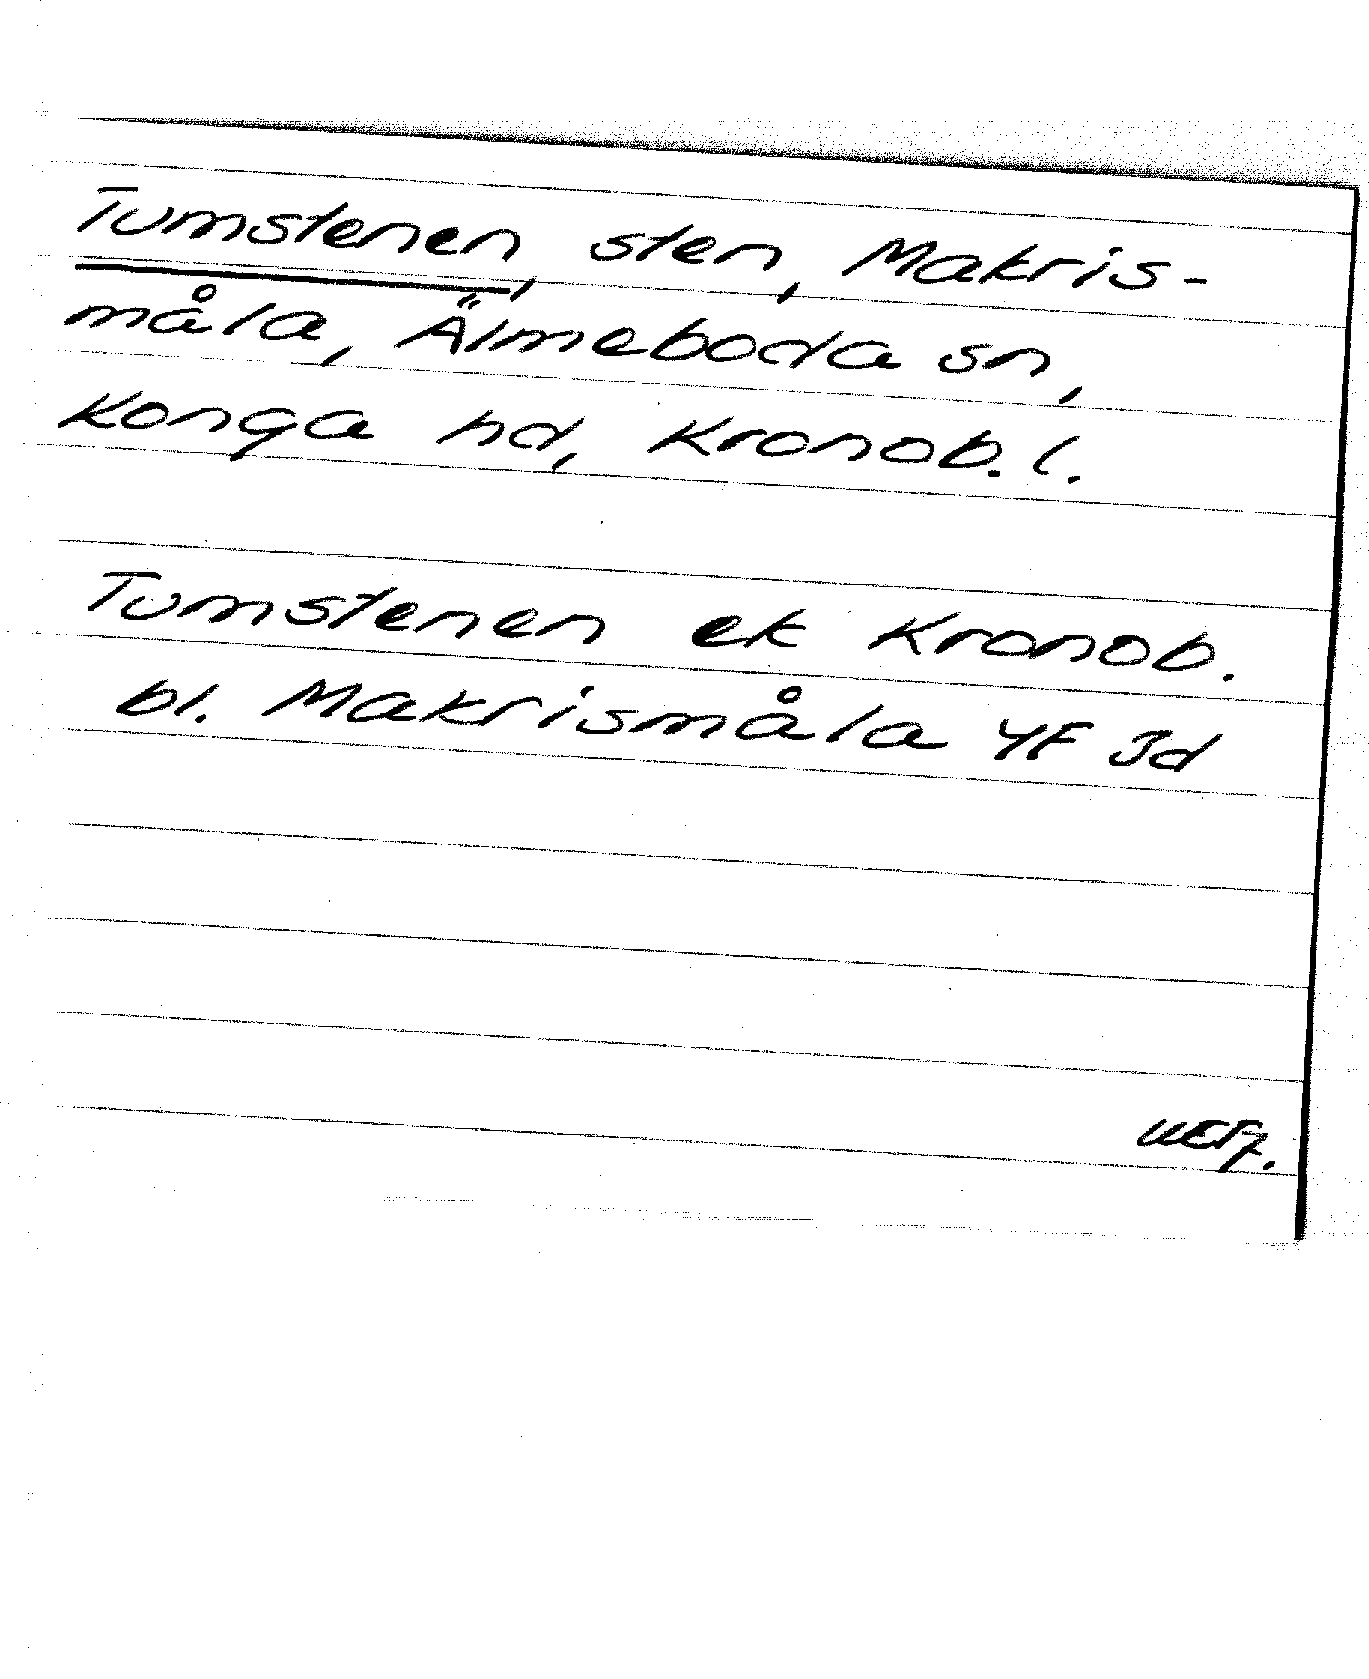 Tumstenen, sten, Makris-
måla, Älmeboda sn,
Konga hd, Kronob. l.
Tumstenen ek Kronob.
bl. Makrismåla 4F Jd